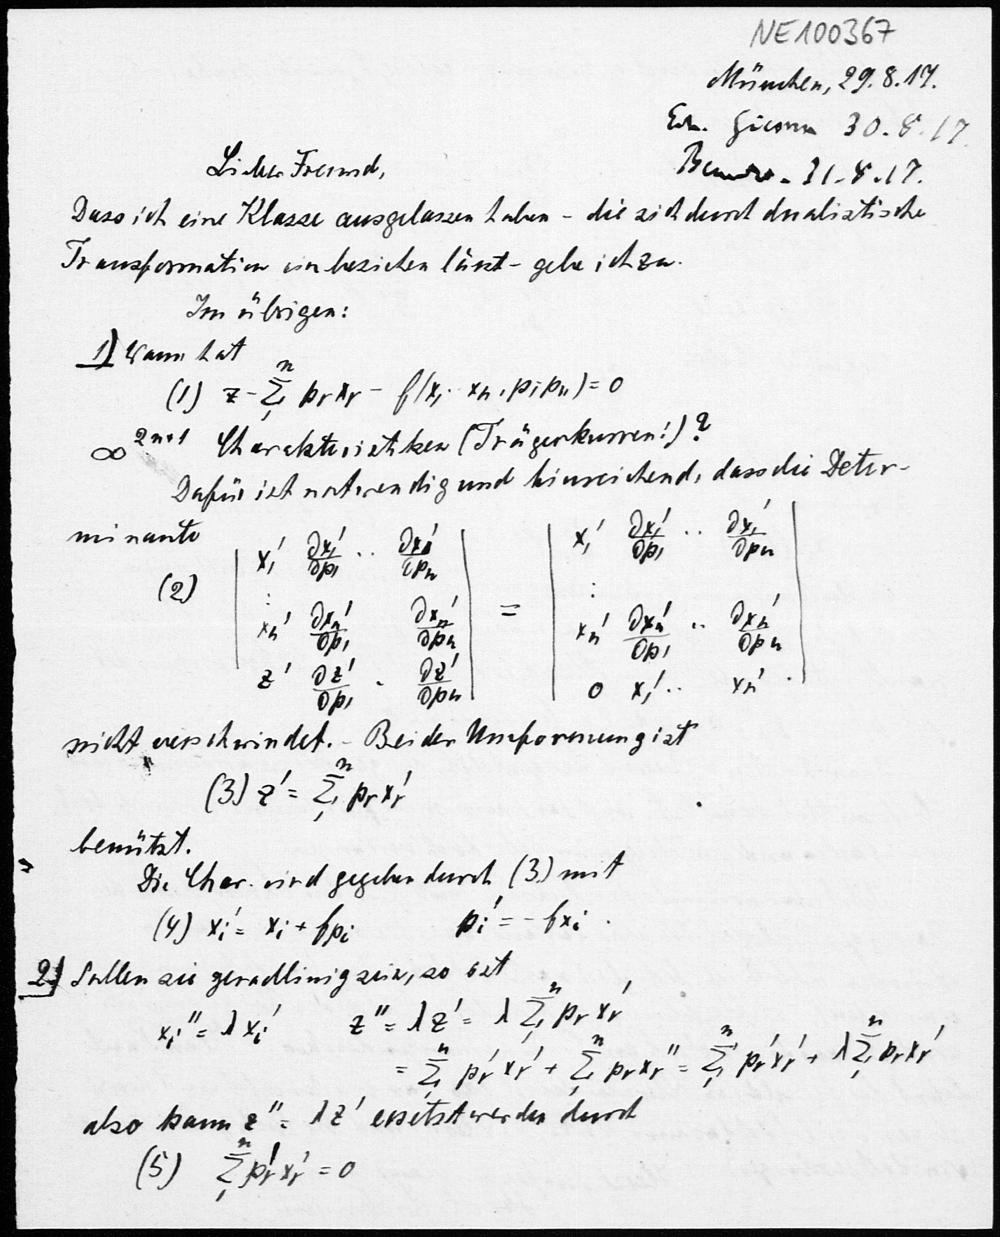 NE100367
München, 29.8.17.
30.8.17
31.8.17.
Lieber Freund,
Dass ich eine Klasse ausgelassen habe – die sich durch dualistische
Transformation einbeziehen lässt – gebe ich zu.
Im übrigen:
1) Wann hat
(1) z - Σ₁ⁿ pᵣxᵣ - f(x₁ ·· xₙ, p₁ pₙ) = 0
∞²ⁿ⁺¹ Charakteristiken (Trägerkurven!)?
Dafür ist notwendig und hinreichend, dass die Deter-
minante
(2) | x₁' ∂x₁'/∂p₁ ·· ∂x₁'/∂pₙ ; : ; xₙ' ∂xₙ'/∂p₁ ∂xₙ'/∂pₙ ; z' ∂z'/∂p₁ · ∂z'/∂pₙ | = | x₁' ∂x₁'/∂p₁ ·· ∂x₁'/∂pₙ ; : ; xₙ' ∂xₙ'/∂p₁ ·· ∂xₙ'/∂pₙ ; 0 x₁' ·· xₙ' |
nicht verschwindet. – Bei der Umformung ist
(3) z' = Σ₁ⁿ pᵣxᵣ'
benützt.
Die Char. wird gegeben durch (3) mit
(4) xᵢ' = xᵢ + fpᵢ pᵢ' = -fxᵢ.
2) Sollen sie geradlinig sein, so ist
xᵢ'' = λxᵢ' z'' = λz' = λ Σ₁ⁿ pᵣxᵣ'
= Σ₁ⁿ pᵣ'xᵣ' + Σ₁ⁿ pᵣxᵣ'' = Σ₁ⁿ pᵣ'xᵣ' + λ Σ₁ⁿ pᵣxᵣ'
also kann z'' = λz' ersetzt werden durch
(5) Σ₁ⁿ pᵣ'xᵣ' = 0